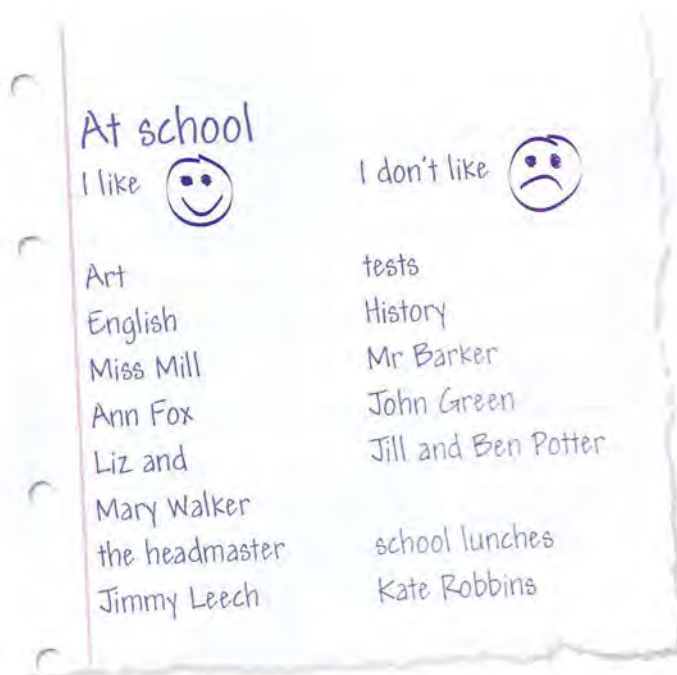 At school
I like
Art
English
Miss Mill
Ann Fox
Liz and
Mary Walker
the headmaster
Jimmy Leech
I don't like
tests
History
Mr Barker
John Green
Jill and Ben Potter
school lunches
Kate Robbins